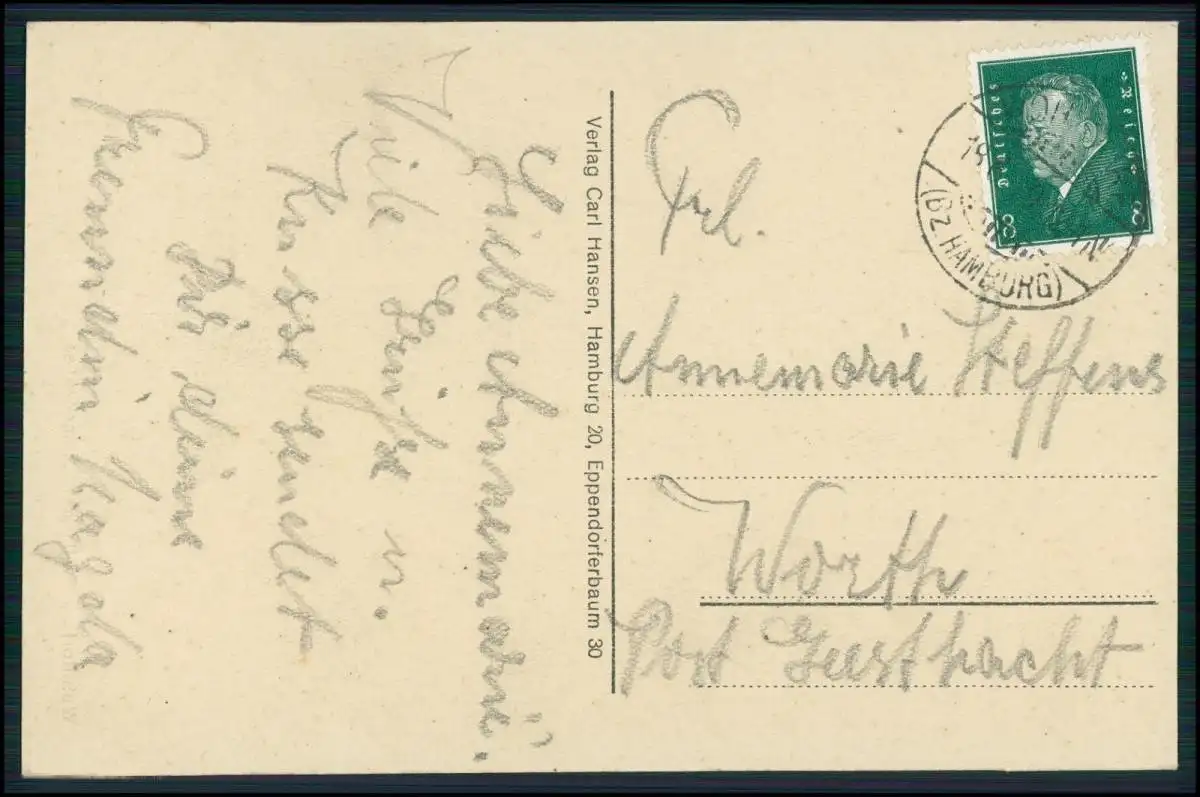 Liebe Annemarie!
Viele Grüße u.
Küsse sendet
Dir Deine
Freundin Magda
Verlag Carl Hansen, Hamburg 20, Eppendorferbaum 30
Frl.
Annemarie Steffens
Worth
Post Geesthacht
Deutsches Reich
8 8
19
(BZ. HAMBURG)